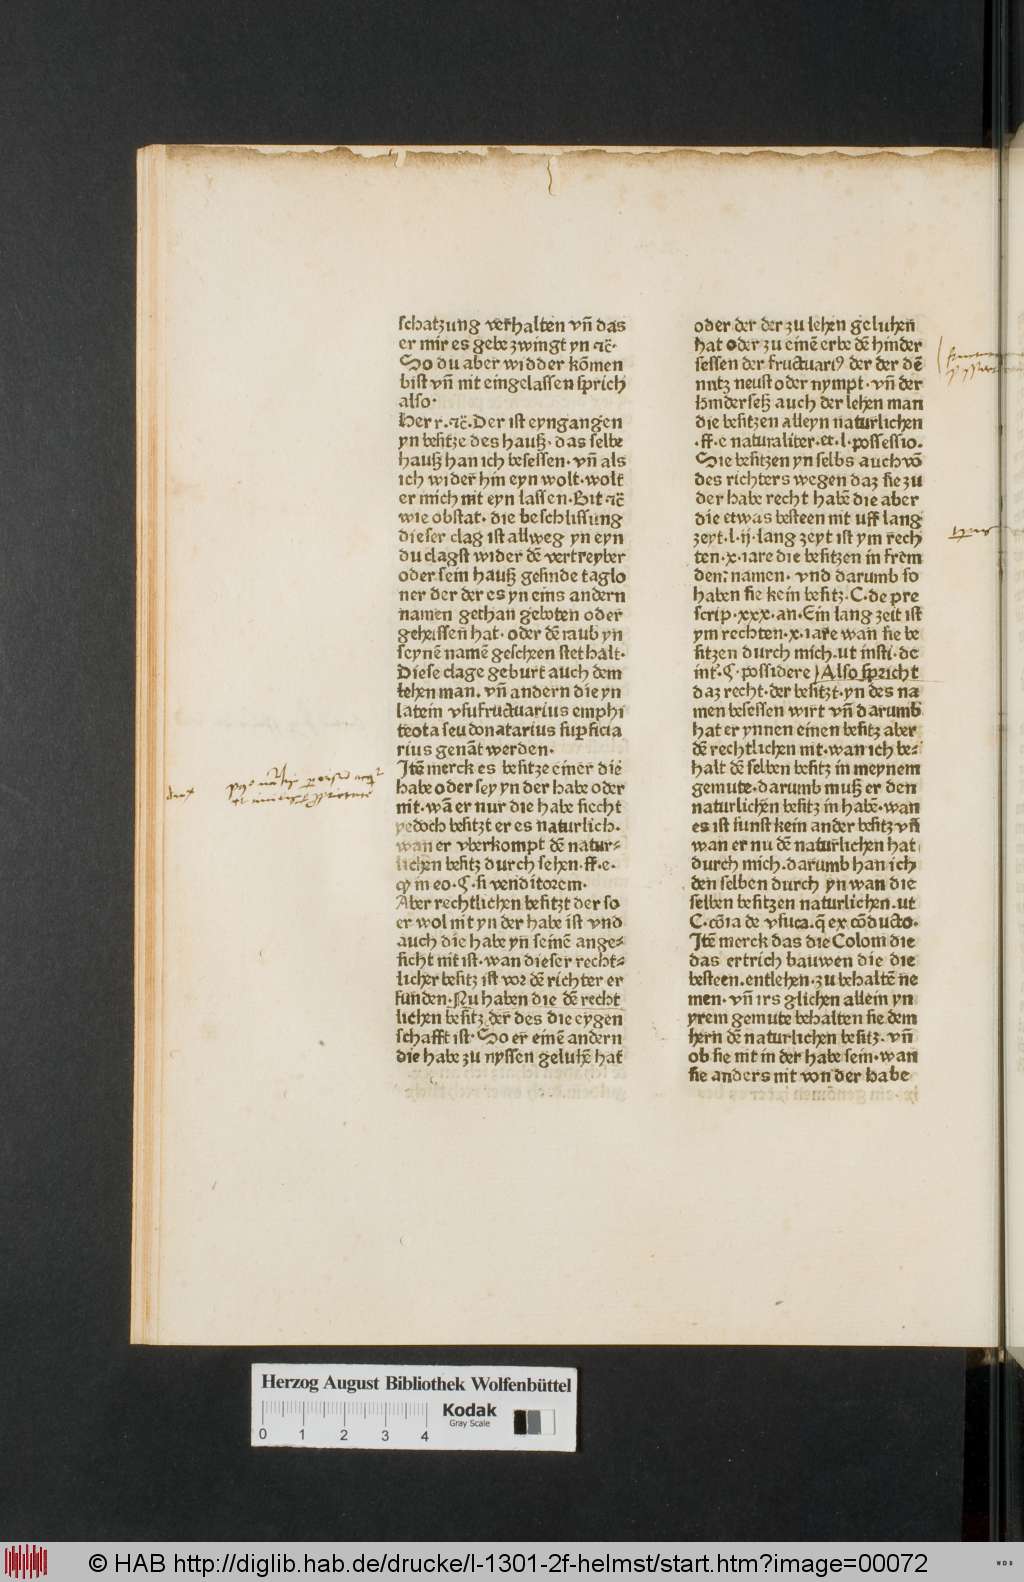 schatzung verhalten vñ das
er mir es gebe zwingt yn ꝛc̃·
So du aber widder kõmen
bist vñ nit eingelassen sprich
also·
Herr·ꝛc̃·Der ist eyngangen
yn besitze des hauß·das selbe
hauß han ich besessen·vñ als
ich wider hin eyn wolt·wolt
er mich nit eyn lassen·Bit ꝛc̃
wie obstat·die beschlissung
dieser clag ist allweg yn eyn
du clagst wider dẽ vertreyber
oder sein hauß gesinde taglo
ner der der es yn eins andern
namen gethan geboten oder
geheissen hat·oder dẽ raub yn
seynẽ namẽ gescheen stet halt·
Diese clage geburt auch dem
lehen man·vñ andern die yn
latein vsufructuarius emphi
teota seu donatarius suꝑficia
rius genãt werden·
Itẽ merck es besitze einer die
habe oder sey yn der habe oder
nit·wã er nur die habe siecht
yedoch besitzt er es naturlich·
wan er vberkompt dẽ natur⸗
lichen besitz durch sehen·ff·e·
q̃ in eo·¶·si venditorem·
Aber rechtlichen besitzt der so
er wol nit yn der habe ist vnd
auch die habe yn seinẽ ange⸗
sicht nit ist·wan dieser recht⸗
licher besitz ist vor dẽ richter er
funden·Nu haben die dẽ recht
lichen besitz der des die eygen
schafft ist·So er einẽ andern
die habe zu nyssen geluhẽ hat
oder der der zu lehen geluhen
hat oder zu einẽ erbe dẽ hinder
sessen der fructuariꝰ der der dẽ
nutz neust oder nympt·vñ der
hinderseß auch der lehen man
die besitzen alleyn naturlichen
·ff·e naturaliter·et·l·possessio·
Sie besitzen yn selbs auch võ
des richters wegen daz sie zu
der habe recht habẽ die aber
die etwas besteen nit uff lang
zeyt·l·ij·lang zeyt ist ym rech
ten·x·iare die besitzen in frem
den namen·vnd darumb so
haben sie kein besitz·C·de pre
scrip·xxx·an·Ein lang zeit ist
ym rechten·x·iare wan sie be
sitzen durch mich·ut insti·de
int̃·¶·possidere Also spricht
daz recht·der besitzt·yn des na
men besessen wirt vñ darumb
hat er ynnen einen besitz aber
dẽ rechtlichen nit·wan ich be⸗
halt dẽ selben besitz in meynem
gemute·darumb muß er den
naturlichen besitz in habẽ·wan
es ist sunst kein ander besitz vñ
wan er nu dẽ naturlichen hat
durch mich·darumb han ich
den selben durch yn wan die
selben besitzen naturlichen·ut
C·cõia de vsuca·q̃ ex cõducto·
Itẽ merck das die Coloni die
das ertrich bauwen die die
besteen·entlehen·zu behaltẽ ne
men·vñ irs glichen allein yn
yrem gemute behalten sie dem
hern dẽ naturlichen besitz·vñ
ob sie nit in der habe sein·wan
sie anders nit von der habe
Herzog August Bibliothek Wolfenbüttel
Kodak
Gray Scale
0 1 2 3 4
© HAB http://diglib.hab.de/drucke/l-1301-2f-helmst/start.htm?image=00072